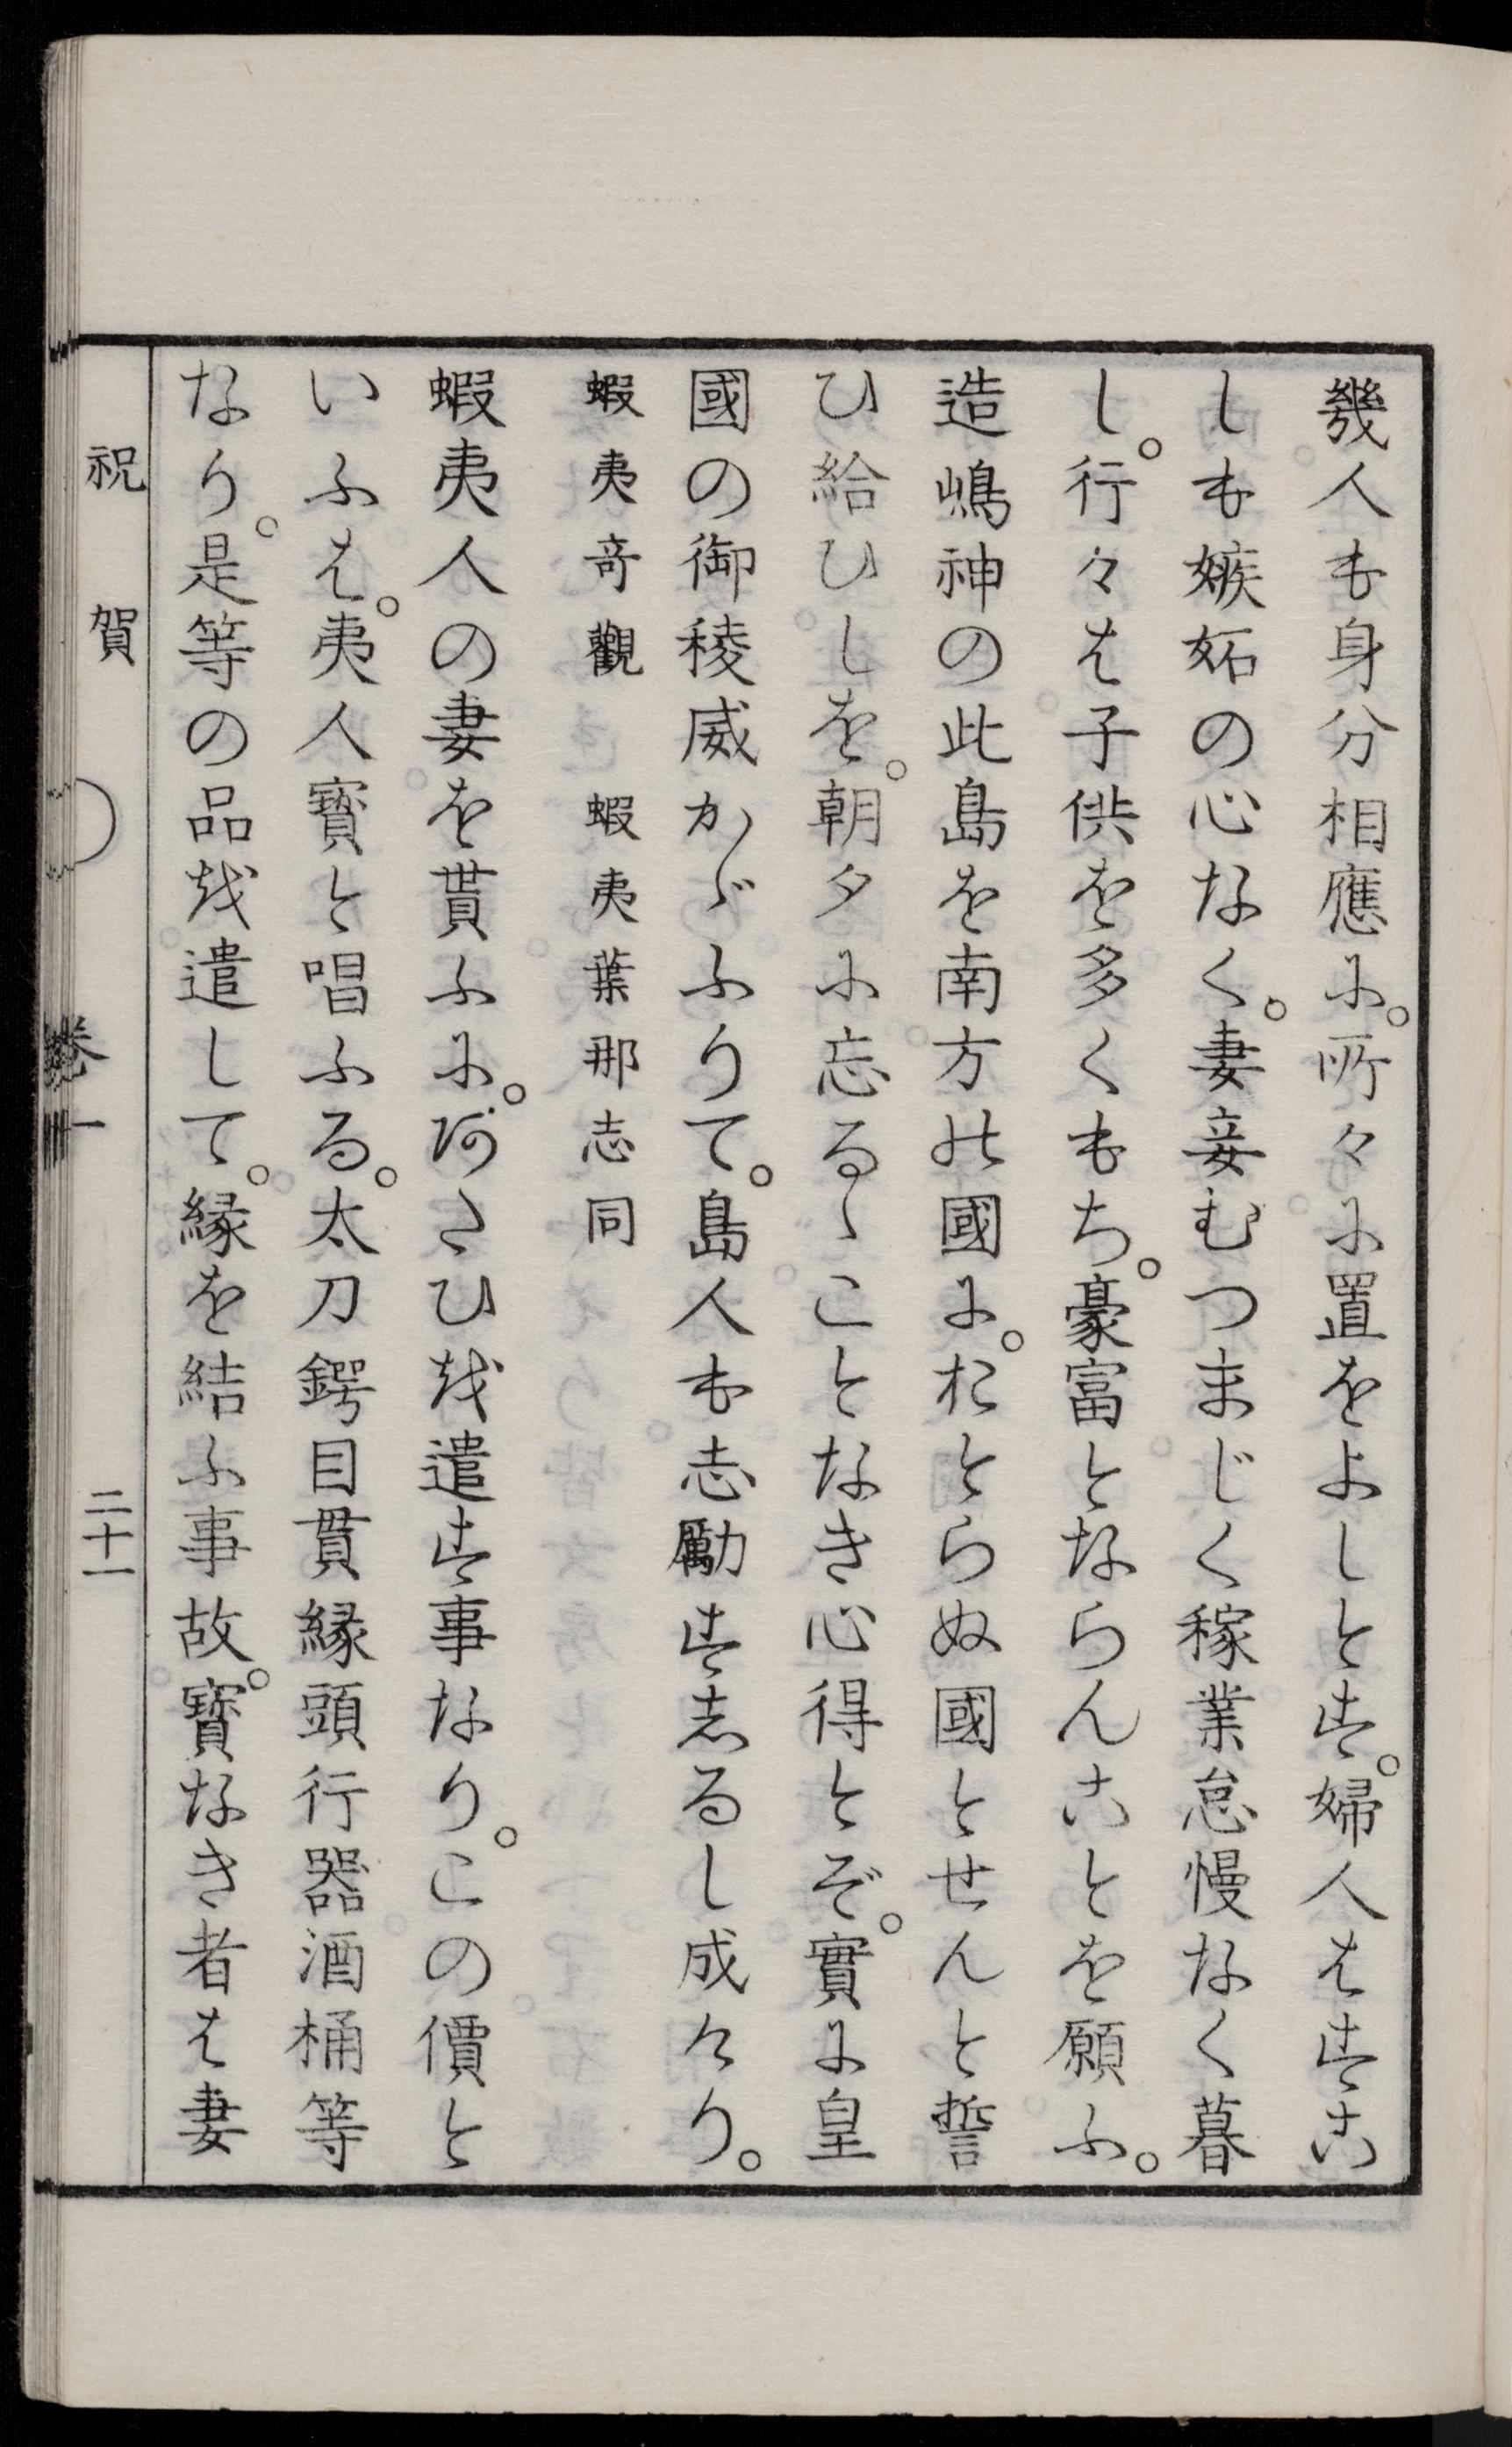 幾人も身分相應に。所々に置をよしとす。婦人はすこ
しも嫉妬の心なく。妻妾むつまじく稼業怠慢なく暮
し。行々は子供を多くもち。豪富とならんことを願ふ。
造嶋神の此島を南方の國に。おとらぬ國とせんと誓
ひ給ひしを。朝夕に忘るゝことなき心得とぞ。實に皇
國の御稜威かゞふりて。島人も志勵すしるし成けり。
蝦夷奇觀　蝦夷葉那志同
蝦夷人の妻を貰ふに。阿さひを遣す事なり。この價と
いふは。夷人寳と唱ふる。太刀鍔目貫縁頭行器酒桶等
なり。是等の品を遣して。縁を結ふ事故。寳なき者は妻
祝賀　卷一　二十一